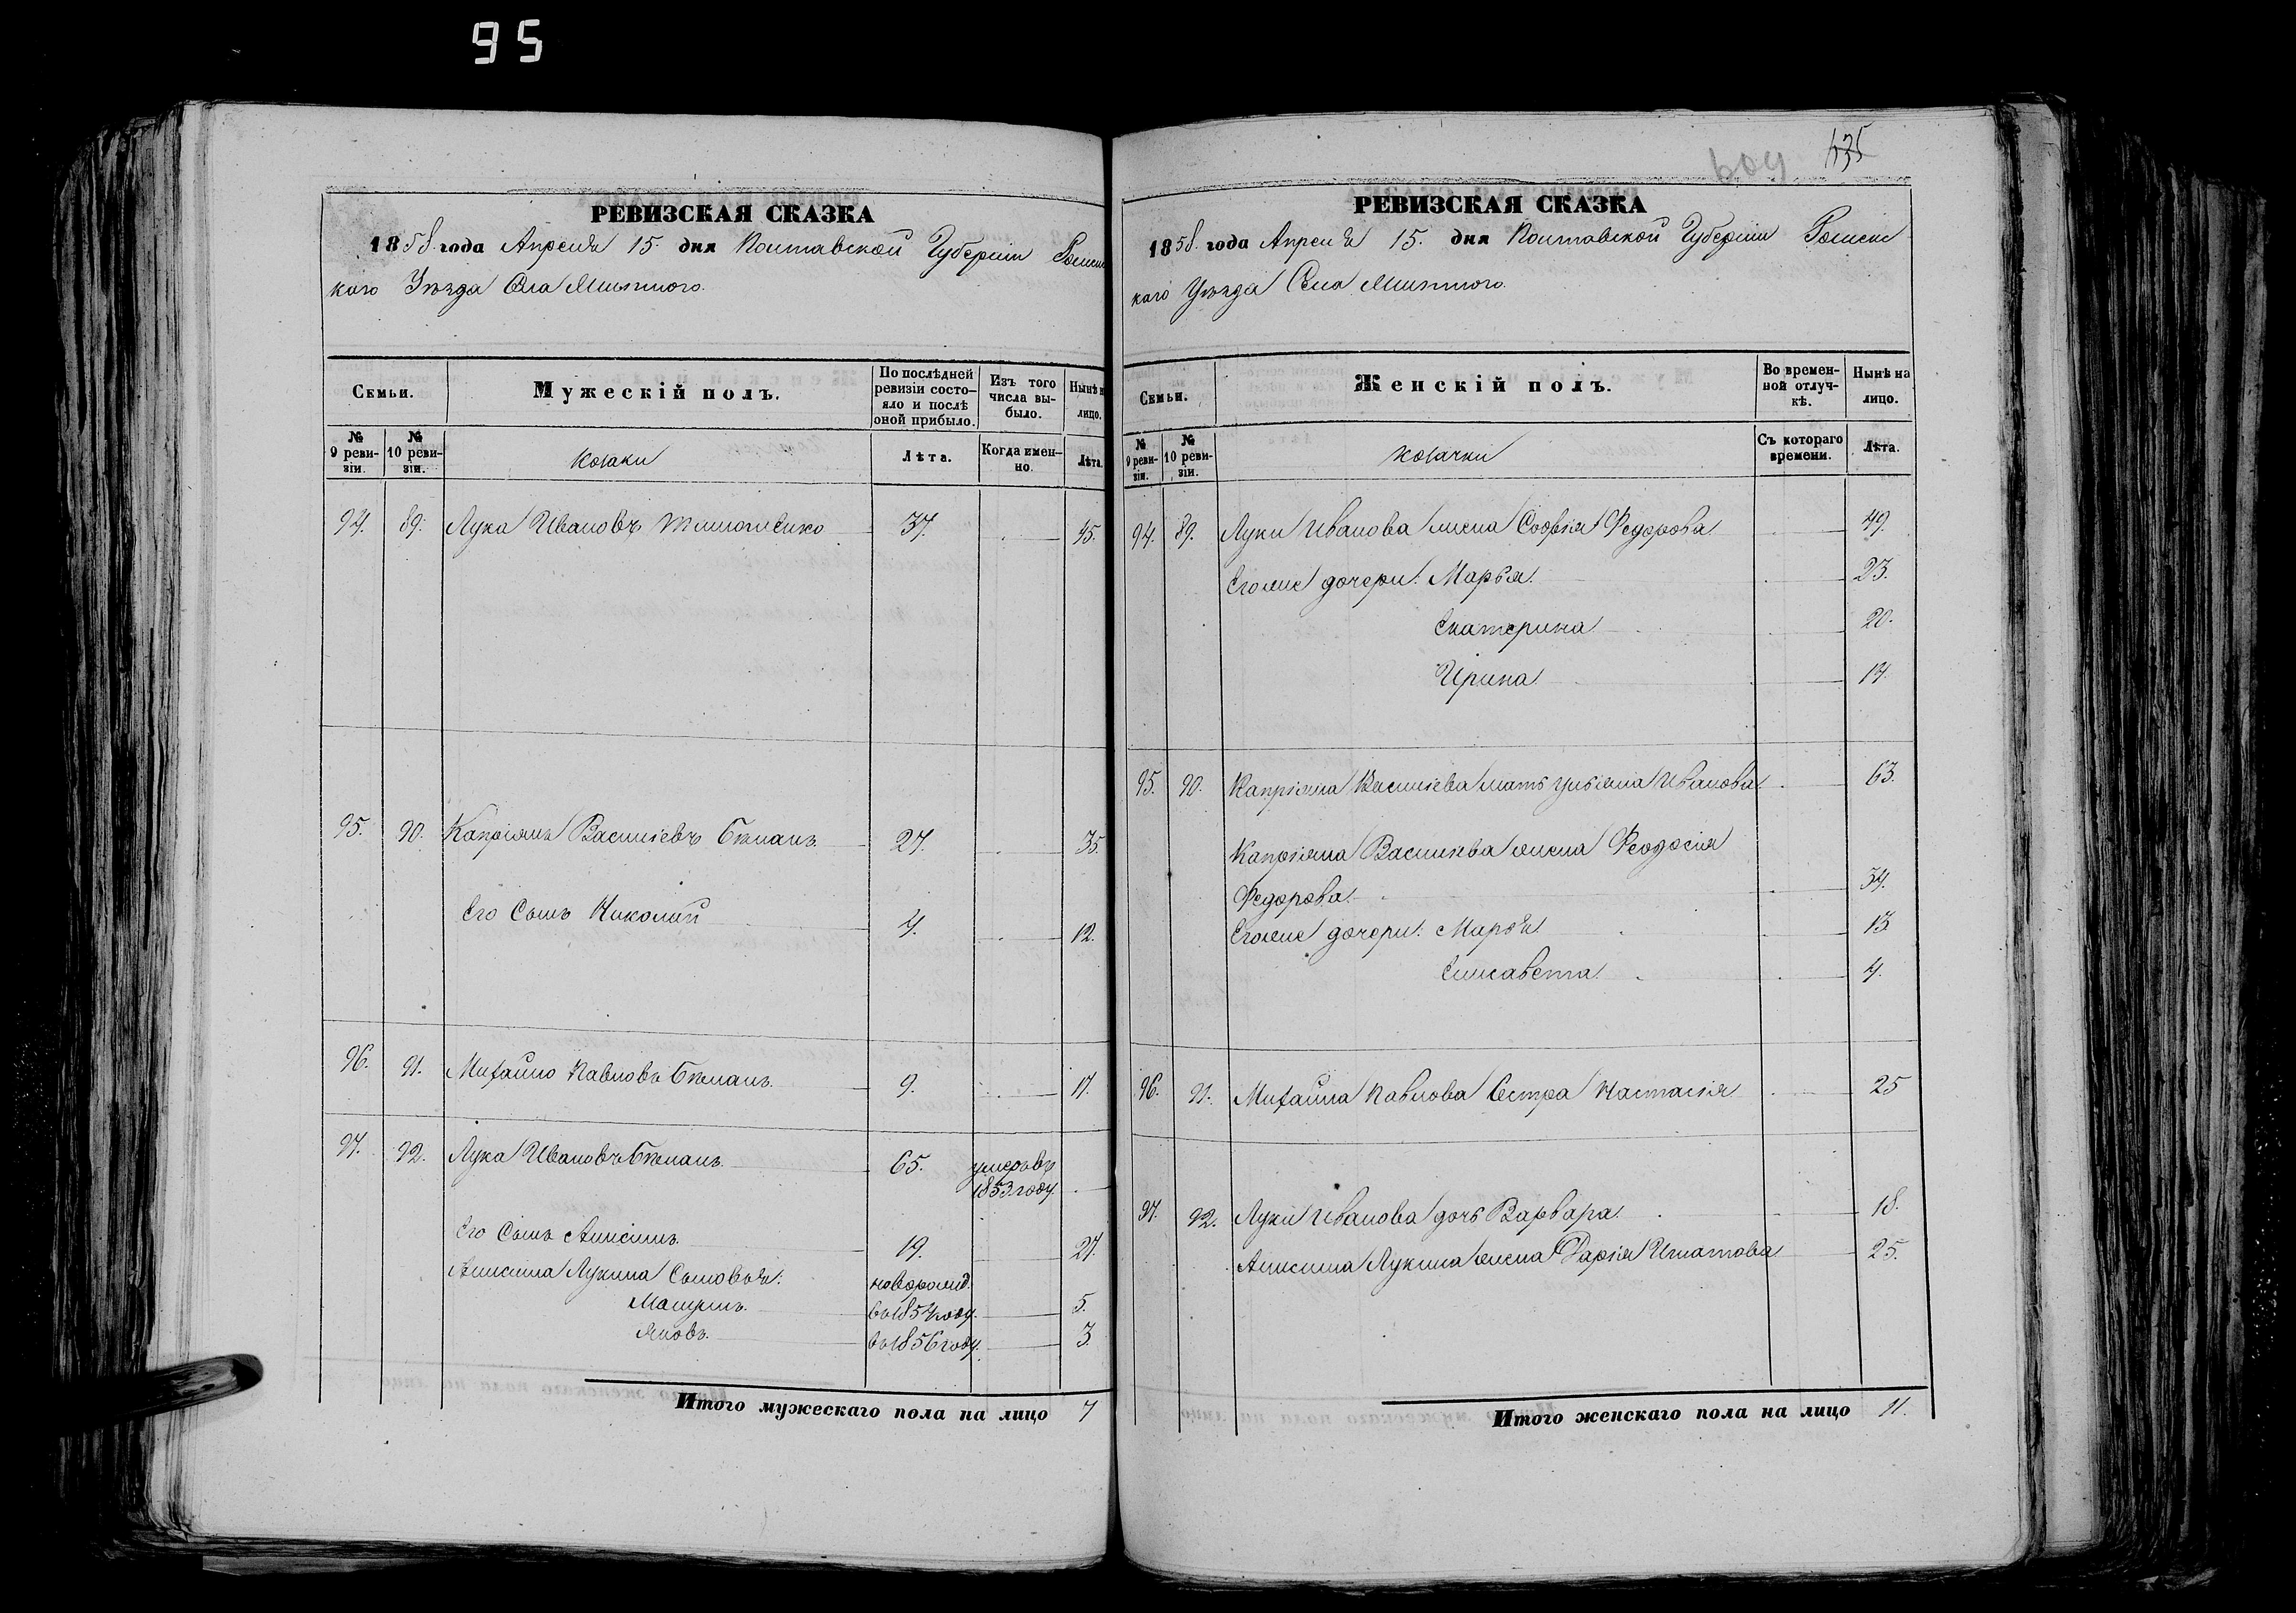 95
РЕВИЗСКАЯ СКАЗКА
1858 года Апреля 15. дня Полтавской Губерніи Роменс
каго Уѣзда Села
Семьи.
Мужескій полъ.
По послѣдней ревизіи состояло и послѣ оной прибыло.
Изъ того числа выбыло.
Нынѣ на лицо.
№ 9 ревизіи.
№ 10 ревизіи.
Козаки
Лѣта.
Когда именно.
Лѣта.
94. 89. Лука Ивановъ 37. 45.
95. 90. Капріянъ Васильевъ 27. 35.
Его Сынъ Николай 4. 12.
96. 91. Михайло Павловъ 9. 17.
97. 92. Лука Ивановъ 65. умеръ въ
1853 году.
Его Сынъ Анисимъ 19. 27.
Анисима Лукина Сыновья: новорожд.
въ 1854 году. 5.
Яковъ. въ 1856 году. 3.
Итого мужескаго пола на лицо 7
609 435
РЕВИЗСКАЯ СКАЗКА
1858. года Апреля 15. дня Полтавской Губерніи Роменс
каго Уѣзда Села
Семьи.
Женскій полъ.
Во временной отлучкѣ.
Нынѣ на лицо.
№ 9 ревизіи.
№ 10 ревизіи.
Козачки
Съ котораго времени.
Лѣта.
94. 89. Луки Иванова жена Софія Федорова 49.
Его же дочери: Марья. 23.
Екатерина 20.
Ирина 14.
95. 90. Капріяна Васильева мать Ульяна Иванова. 63.
Капріяна Васильева жена Феодосія
Федорова. 34.
Его же дочери: Марья 13.
Елисавета. 4.
96. 91. Михайла Павлова Сестра Настасія 25
97. 92. Луки Иванова дочь Варвара. 18.
Анисима Лукина жена Дарія Игнатова 25.
Итого женскаго пола на лицо 11.